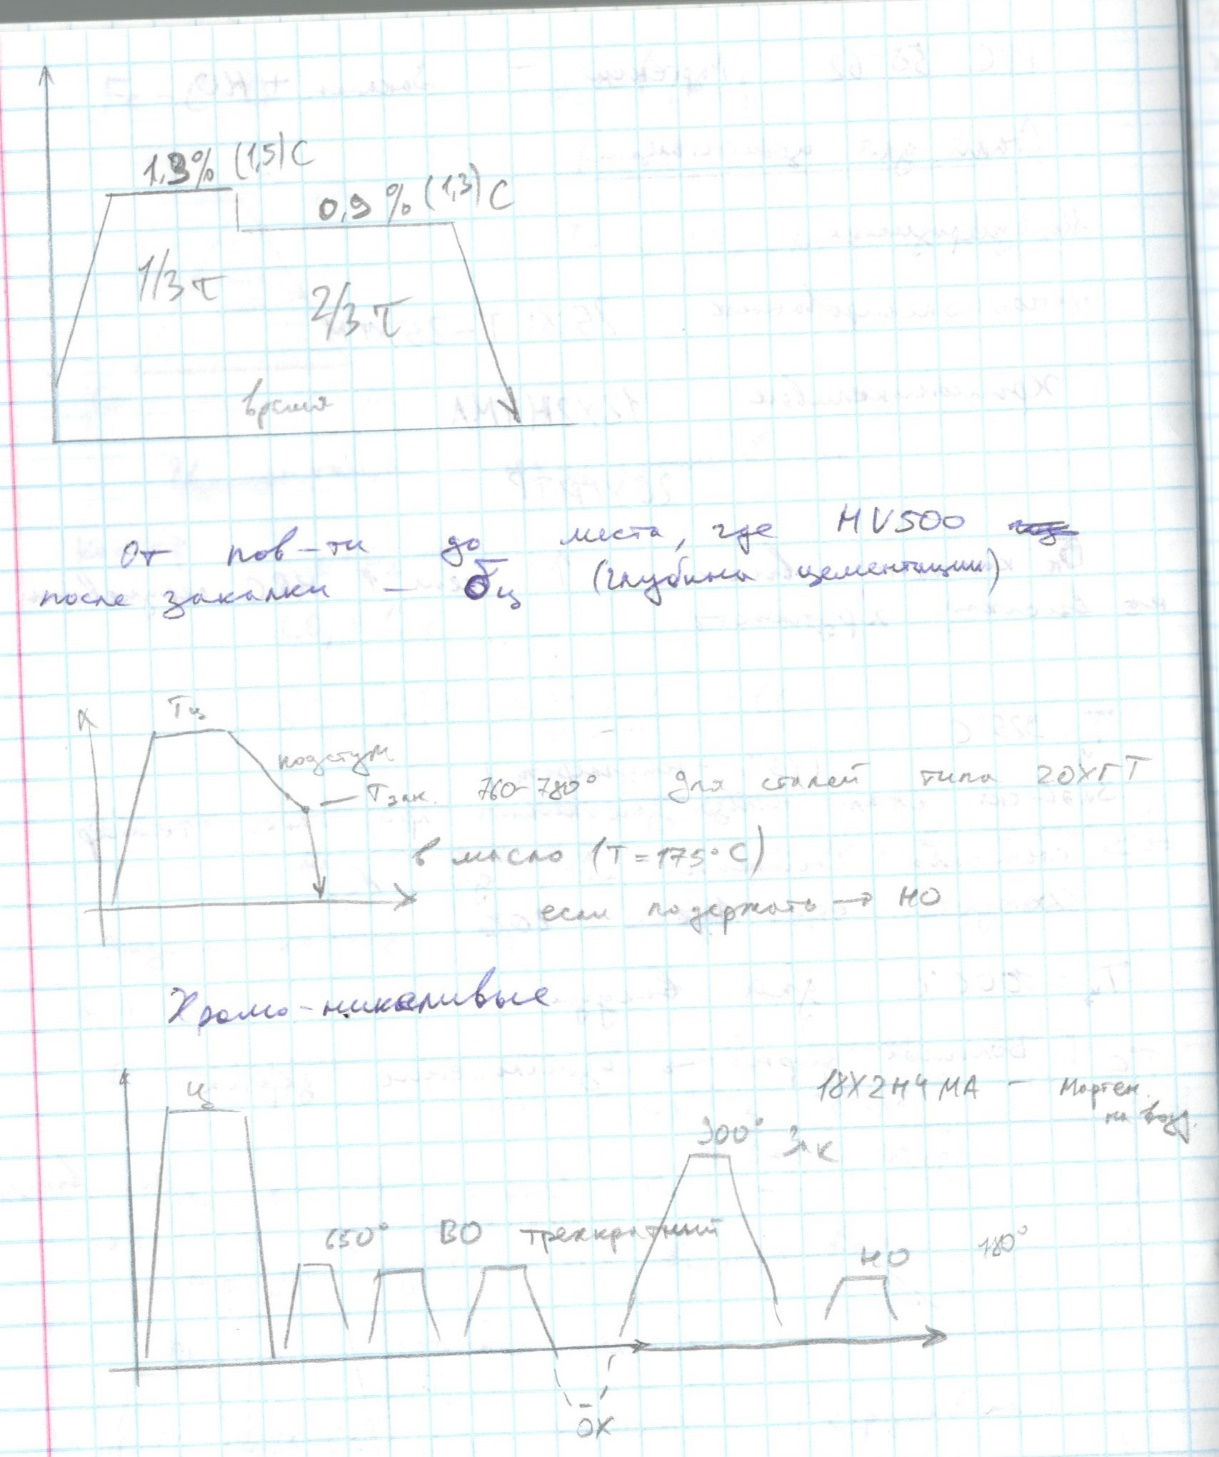 1,3% (1,5) С
0,9% (1,3) С
1/3 τ
2/3 τ
время
От пов-ти до места, где HV500
после закалки — δц (глубина цементации)
Тц
подстуж
Тзак. 760-780° для сталей типа 20ХГТ
в масло (Т=175°С)
если подержать → НО
Хромо-никеливые
Ц
18Х2Н4МА — Мартен.
на возд.
900° Зак
650° ВО трехкратный
НО 180°
ОХ